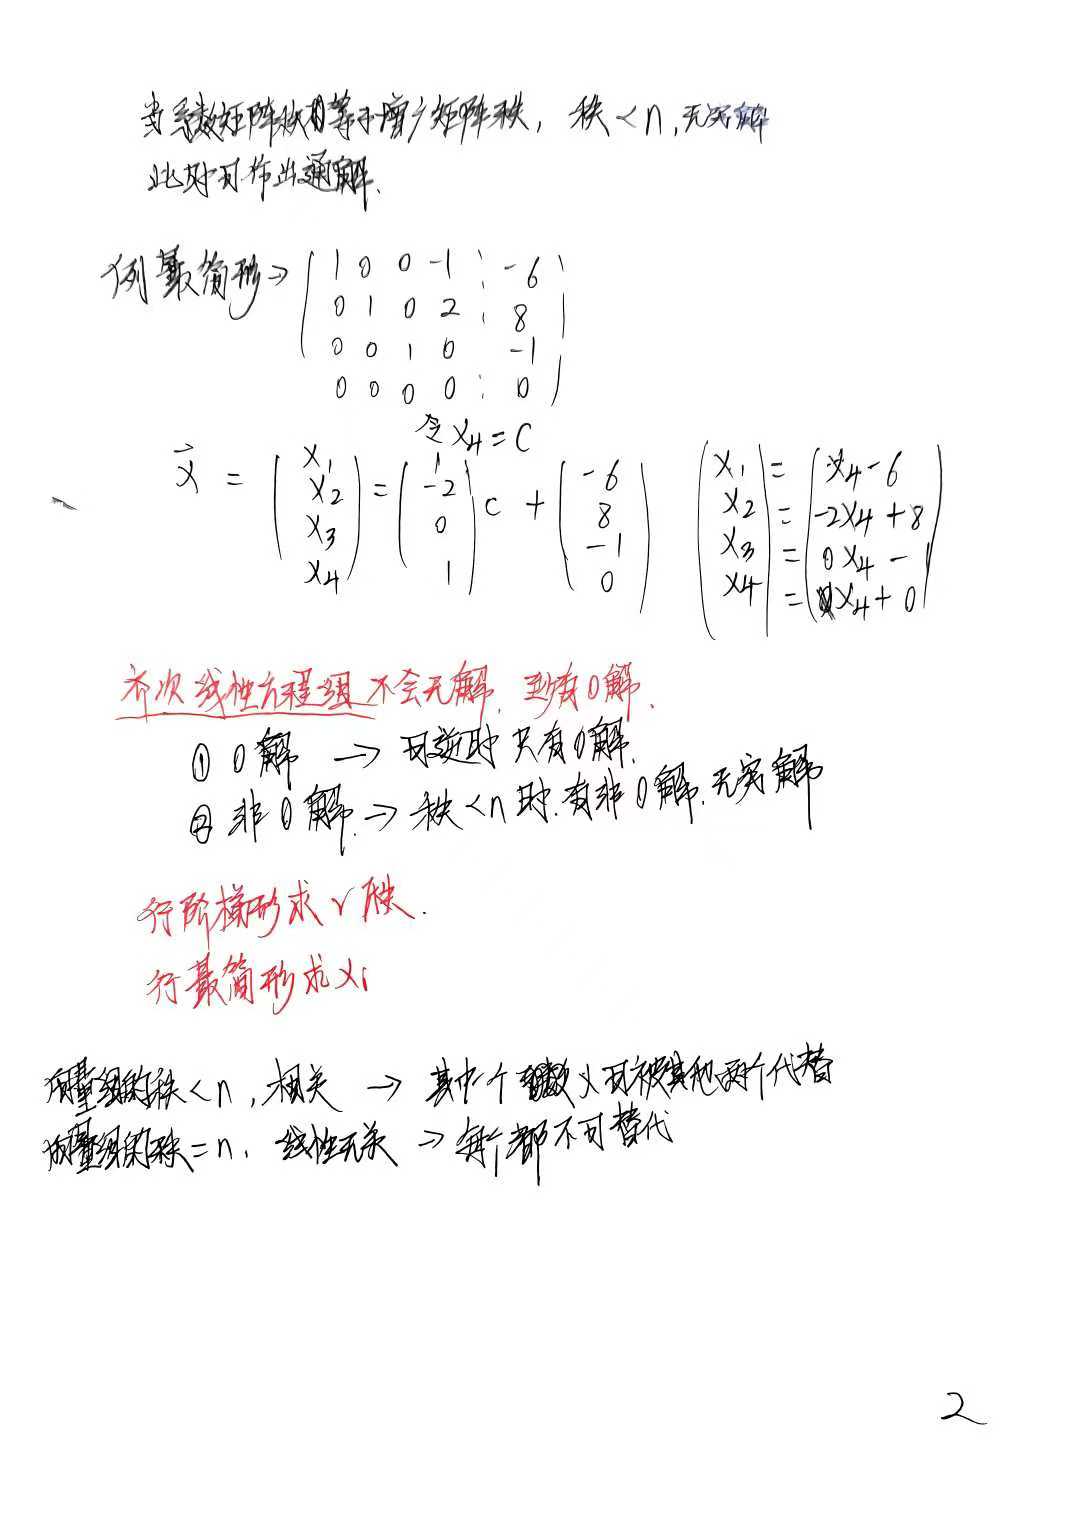 当系数矩阵秩等于增广矩阵秩, 秩<n, 无穷解
此时可作出通解.
例最简形→ ( 1 0 0 -1 ⋮ -6 )
0 1 0 2 ⋮ 8
0 0 1 0 -1
0 0 0 0 ⋮ 0
令 x4 = C
x⃗ = ( x1 x2 x3 x4 ) = ( 1 -2 0 1 ) c + ( -6 8 -1 0 )
x1 = x4 - 6
x2 = -2x4 + 8
x3 = 0x4 - 1
x4 = x4 + 0
齐次线性方程组不会无解, 至少有0解.
① 0解 → 可逆时只有0解.
② 非0解. → 秩<n时.有非0解.无穷解
行阶梯形求 r 秩.
行最简形求xi
向量组的秩<n, 相关 → 其中个可被其他两个代替
向量组的秩=n, 线性无关 → 每个都不可替代
2